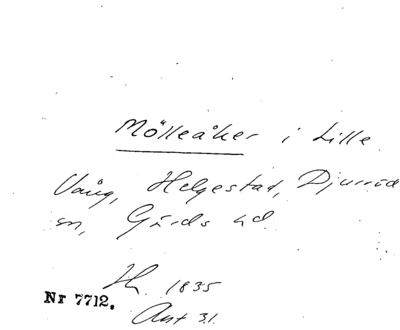 Mölleåker i Lille
Vång, Helgestad, Djurröd
sn, Gärds hd.
Hs. 1835
Nr 7712.
Akt 31.